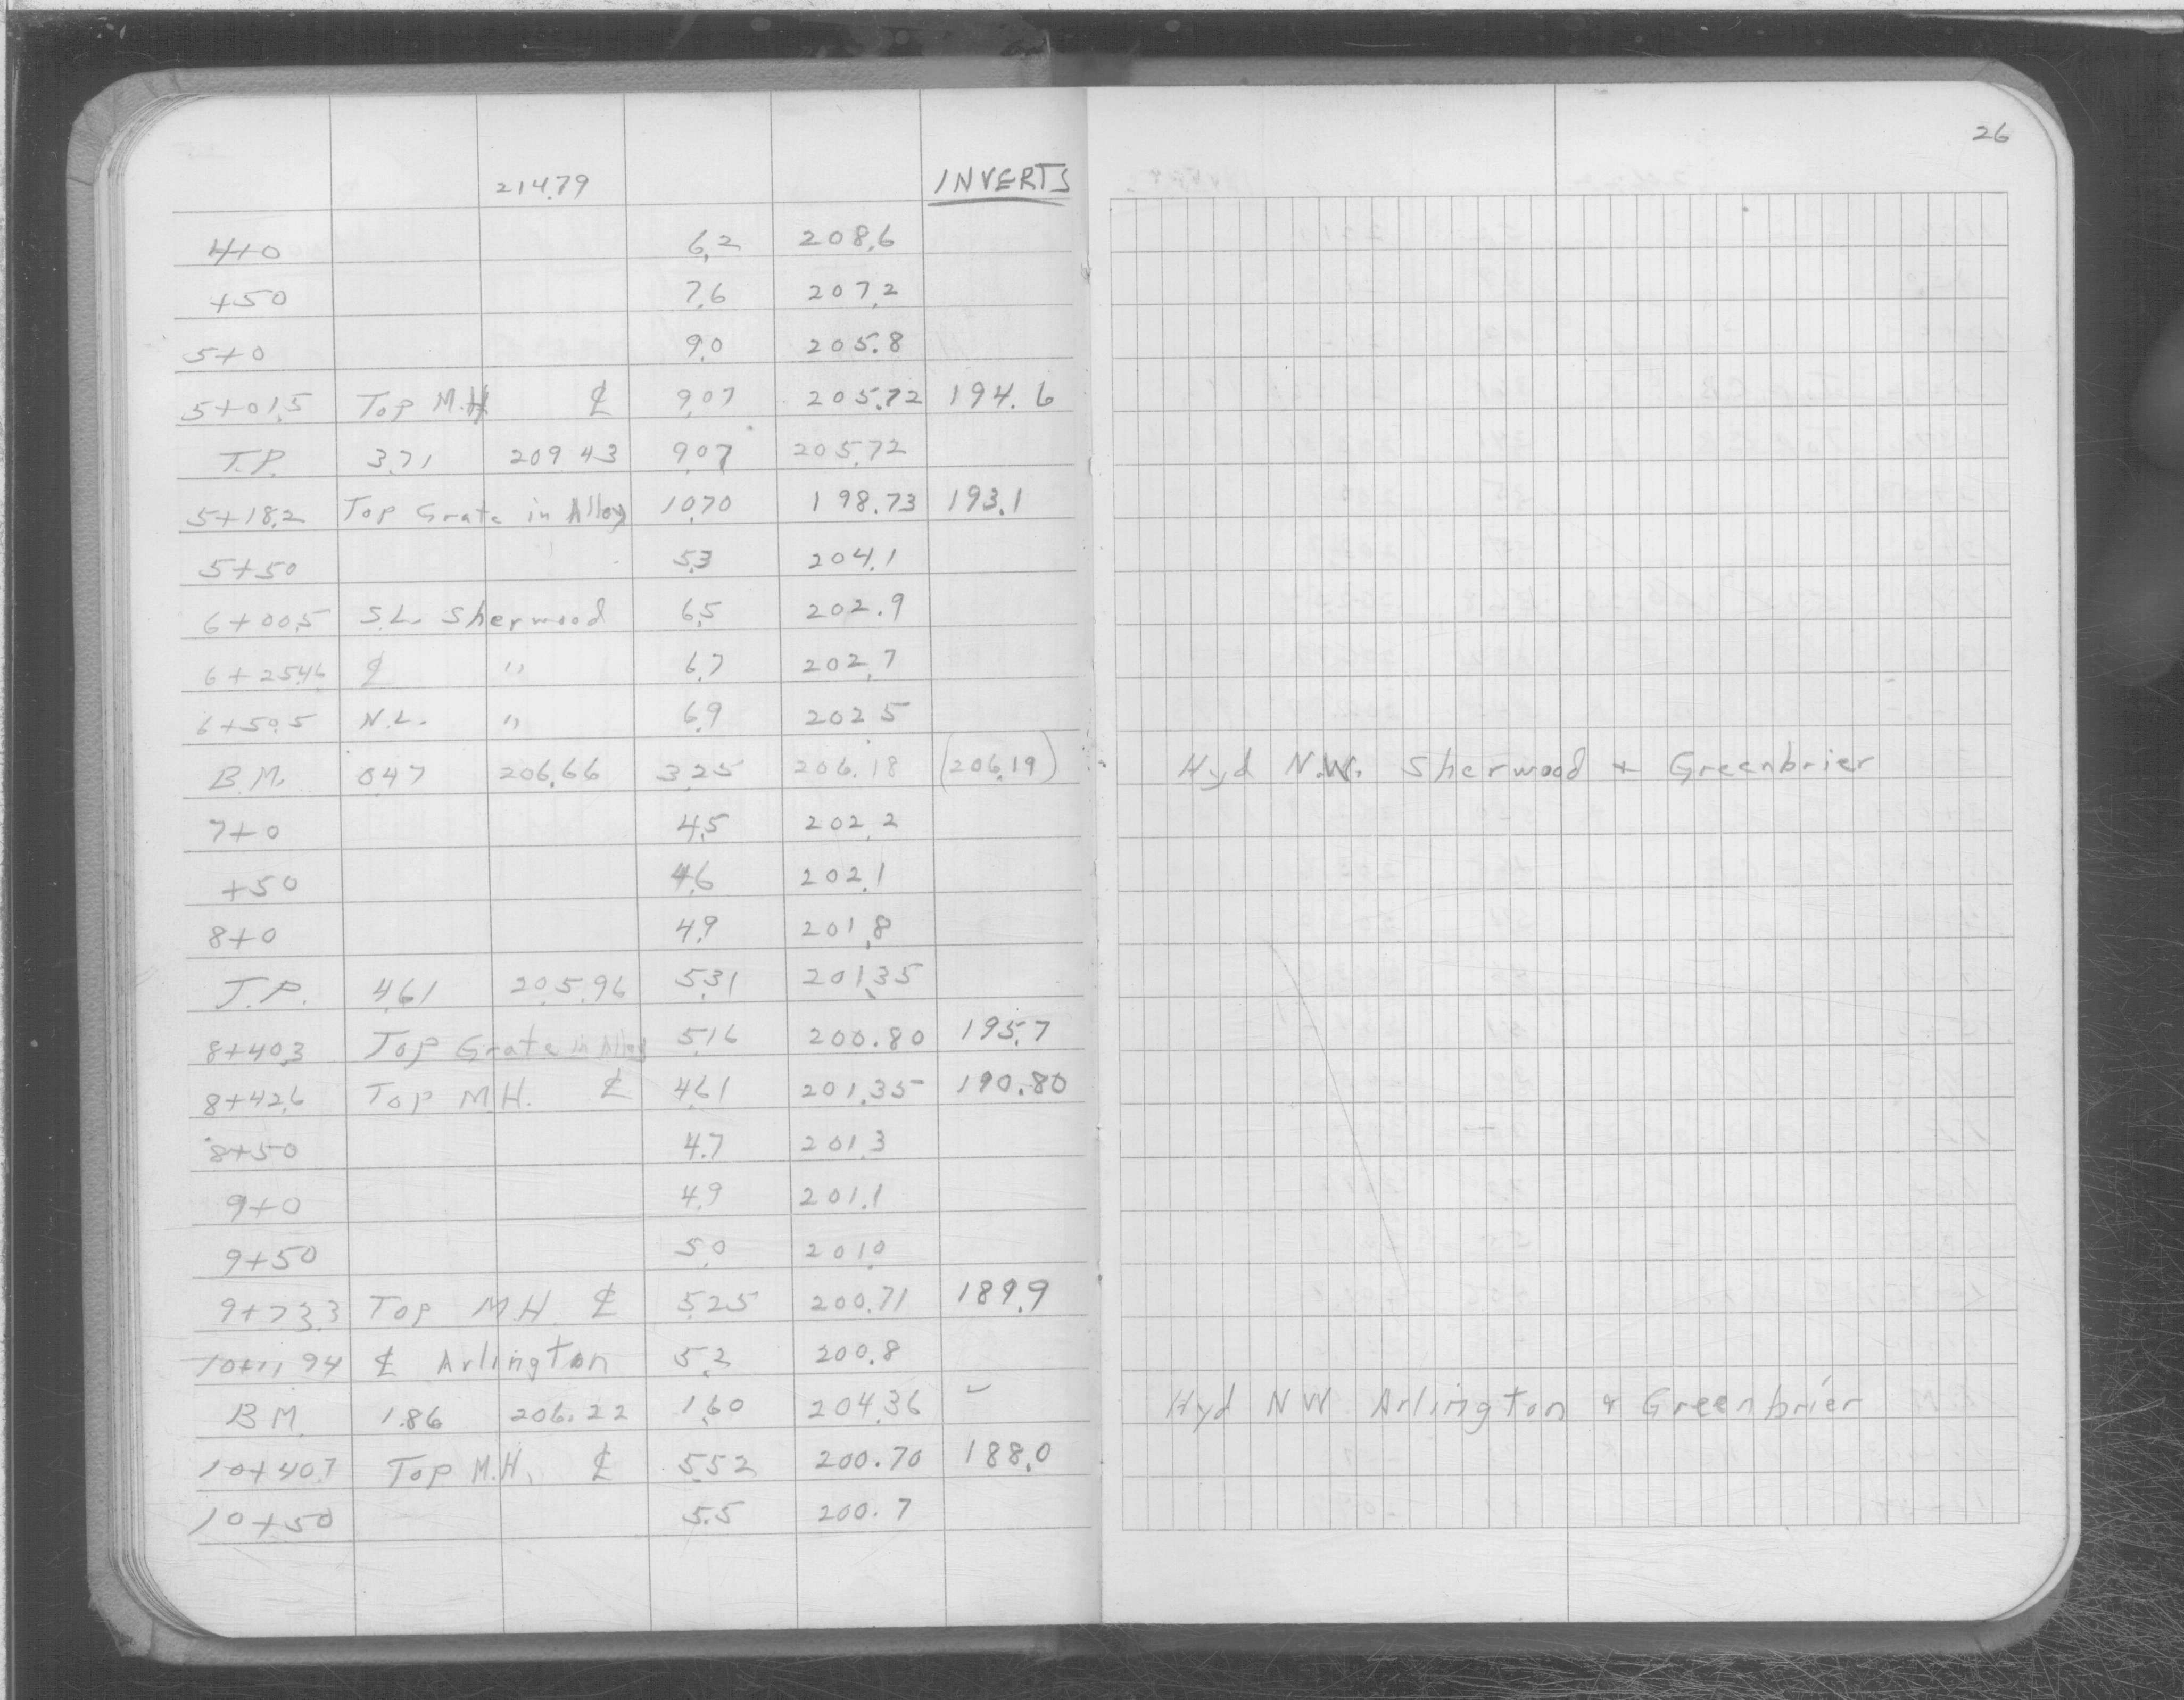 26
214.79 INVERTS
4+0 6.2 208.6
+50 7.6 207.2
5+0 9.0 205.8
5+01.5 Top M.H ℄ 9.07 205.72 194.6
T.P. 3.71 209.43 9.07 205.72
5+18.2 Top Grate in Alley 10.70 198.73 193.1
5+50 5.3 204.1
6+00.5 S.L. Sherwood 6.5 202.9
6+25.46 ℄ " 6.7 202.7
6+50.5 N.L. " 6.9 202.5
B.M. 0.47 206.66 3.25 206.18 (206.19) Hyd N.W. Sherwood + Greenbrier
7+0 4.5 202.2
+50 4.6 202.1
8+0 4.9 201.8
T.P. 4.61 205.96 5.31 201.35
8+40.3 Top Grate in Alley 5.16 200.80 195.7
8+42.6 Top M.H. ℄ 4.61 201.35 190.80
8+50 4.7 201.3
9+0 4.9 201.1
9+50 5.0 201.0
9+73.3 Top M.H. ℄ 5.25 200.71 189.9
10+11.94 ℄ Arlington 5.2 200.8
B.M. 1.86 206.22 1.60 204.36 ✓ Hyd NW Arlington + Greenbrier
10+40.7 Top M.H. ℄ 5.52 200.70 188.0
10+50 5.5 200.7